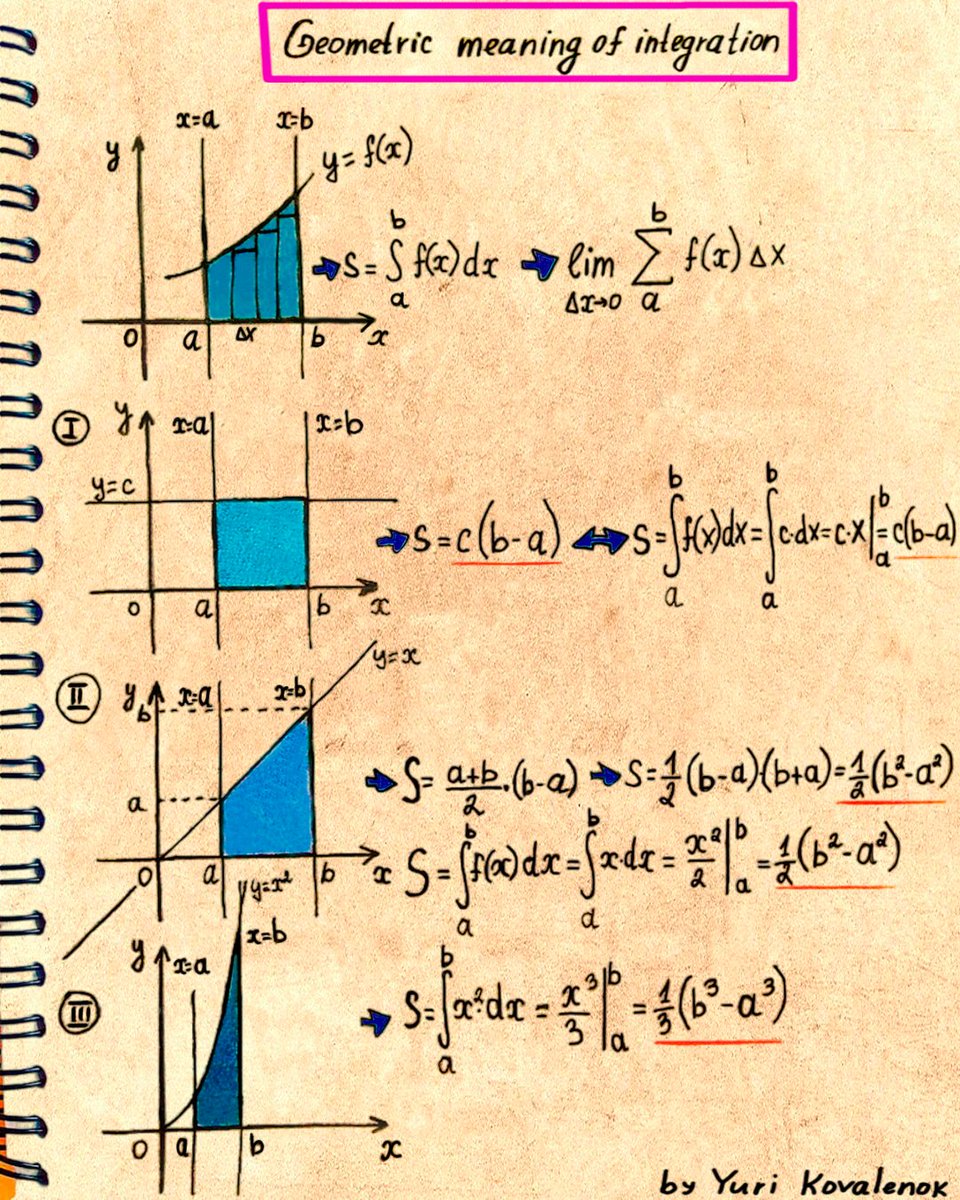 Geometric meaning of integration
x=a x=b
y
y= f(x)
S= ∫ₐᵇ f(x) dx lim Δx→0 ∑ₐᵇ f(x) Δx
0 a Δx b x
I y x=a x=b
y=c
S= c(b-a) S= ∫ₐᵇ f(x)dx= ∫ₐᵇ c·dx= c·x|ₐᵇ = c(b-a)
0 a b x
y=x
II y x=a x=b
b
a
S= (a+b)/2 ·(b-a) S= 1/2 (b-a)·(b+a)= 1/2 (b²-a²)
S= ∫ₐᵇ f(x) dx = ∫ₐᵇ x·dx = x²/2 |ₐᵇ = 1/2 (b²-a²)
0 a b x
y=x²
y x=a x=b
III
S= ∫ₐᵇ x²·dx = x³/3 |ₐᵇ = 1/3 (b³-a³)
0 a b x
by Yuri Kovalenok